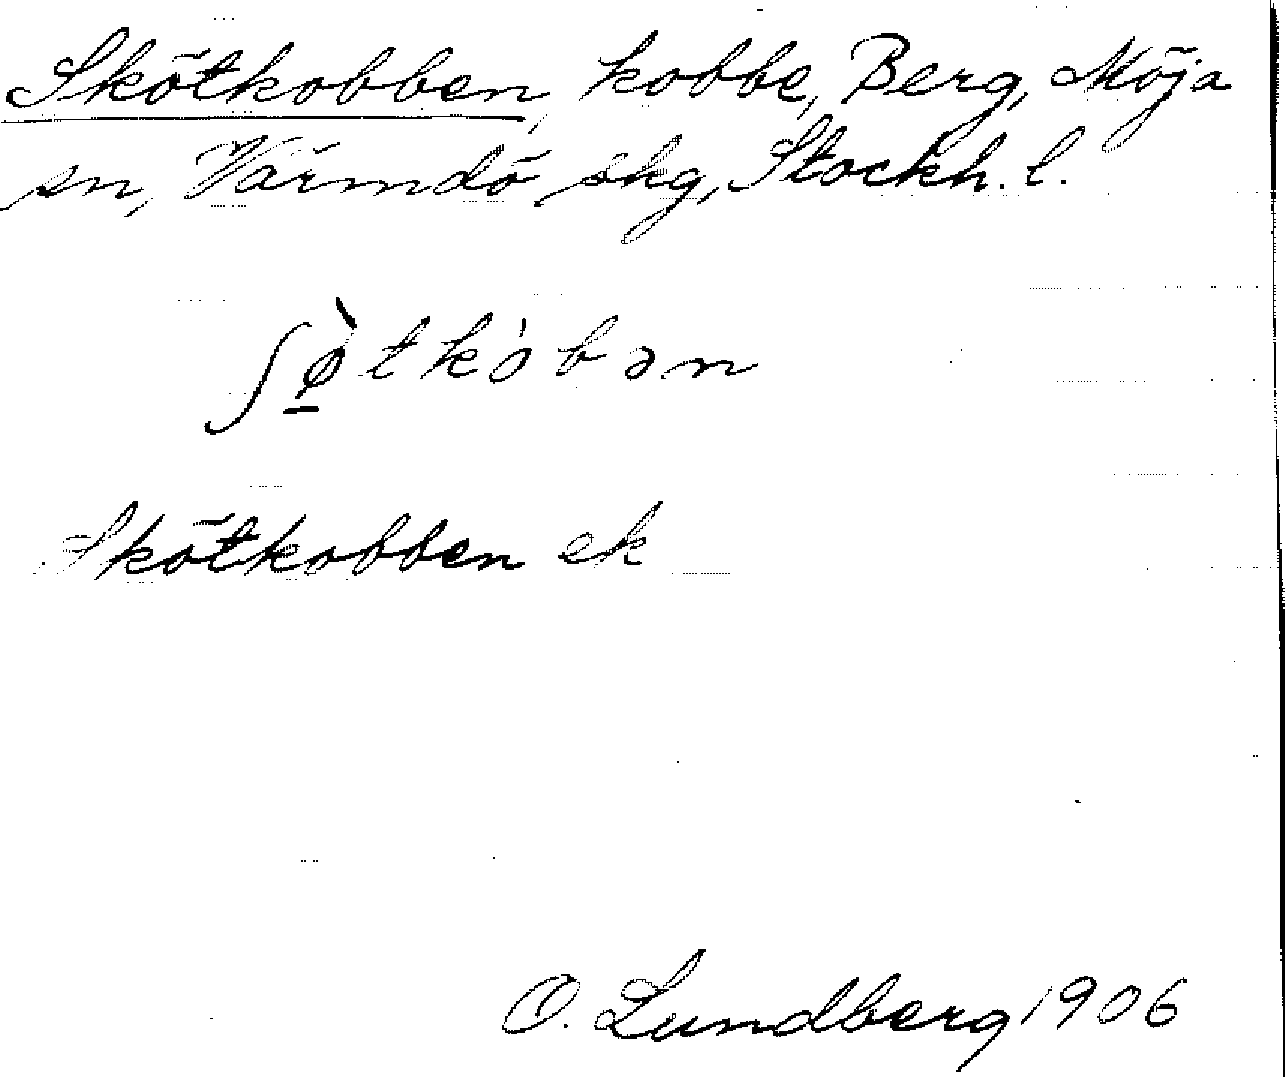 Skötkobben, kobbe, Berg, Möja
sn, Värmdö skg, Stockh. l.
ʃø̠̀tkòbən
Skötkobben ek
O. Lundberg 1906